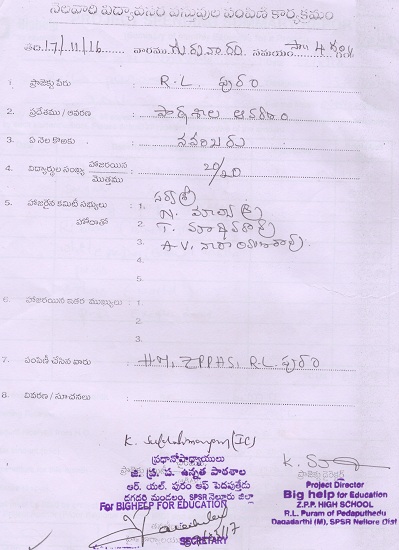 నెలవారి విద్యావసర వస్తువుల పంపిణి కార్యక్రమం
తేది 17/11/16 వారము గురువారం సమయం సా॥ 4 గం॥
1. ప్రాజెక్టు పేరు : R.L. పురం
2. ప్రదేశము / ఆవరణ : పాఠశాల ఆవరణం
3. ఏ నెల కొరకు : నవంబరు
4. విద్యార్థుల సంఖ్య హాజరయిన / మొత్తము : 20/20
5. హాజరైన కమిటీ సభ్యులు : 1.
హోదాతో 2. N.
3. T.
4. A.V.
4.
5.
6. హాజరయిన ఇతర ముఖ్యులు : 1.
2.
3.
7. పంపిణీ చేసిన వారు : H.M, ZPPHS, R.L పురం
8. వివరణ / సూచనలు :
ప్రధానోపాధ్యాయులు
జి. ప్ర. ప. ఉన్నత పాఠశాల
ఆర్. యల్. పురం ఆఫ్ పెదపుత్తేడు
దగదర్తి మండలం, SPSR నెల్లూరు జిల్లా
For BIGHELP FOR EDUCATION
SECRETARY
K.
Project Director
Big help for Education
Z.P.P. HIGH SCHOOL
R.L. Puram of Pedaputhedu
Dagadarthi (M), SPSR Nellore Dist